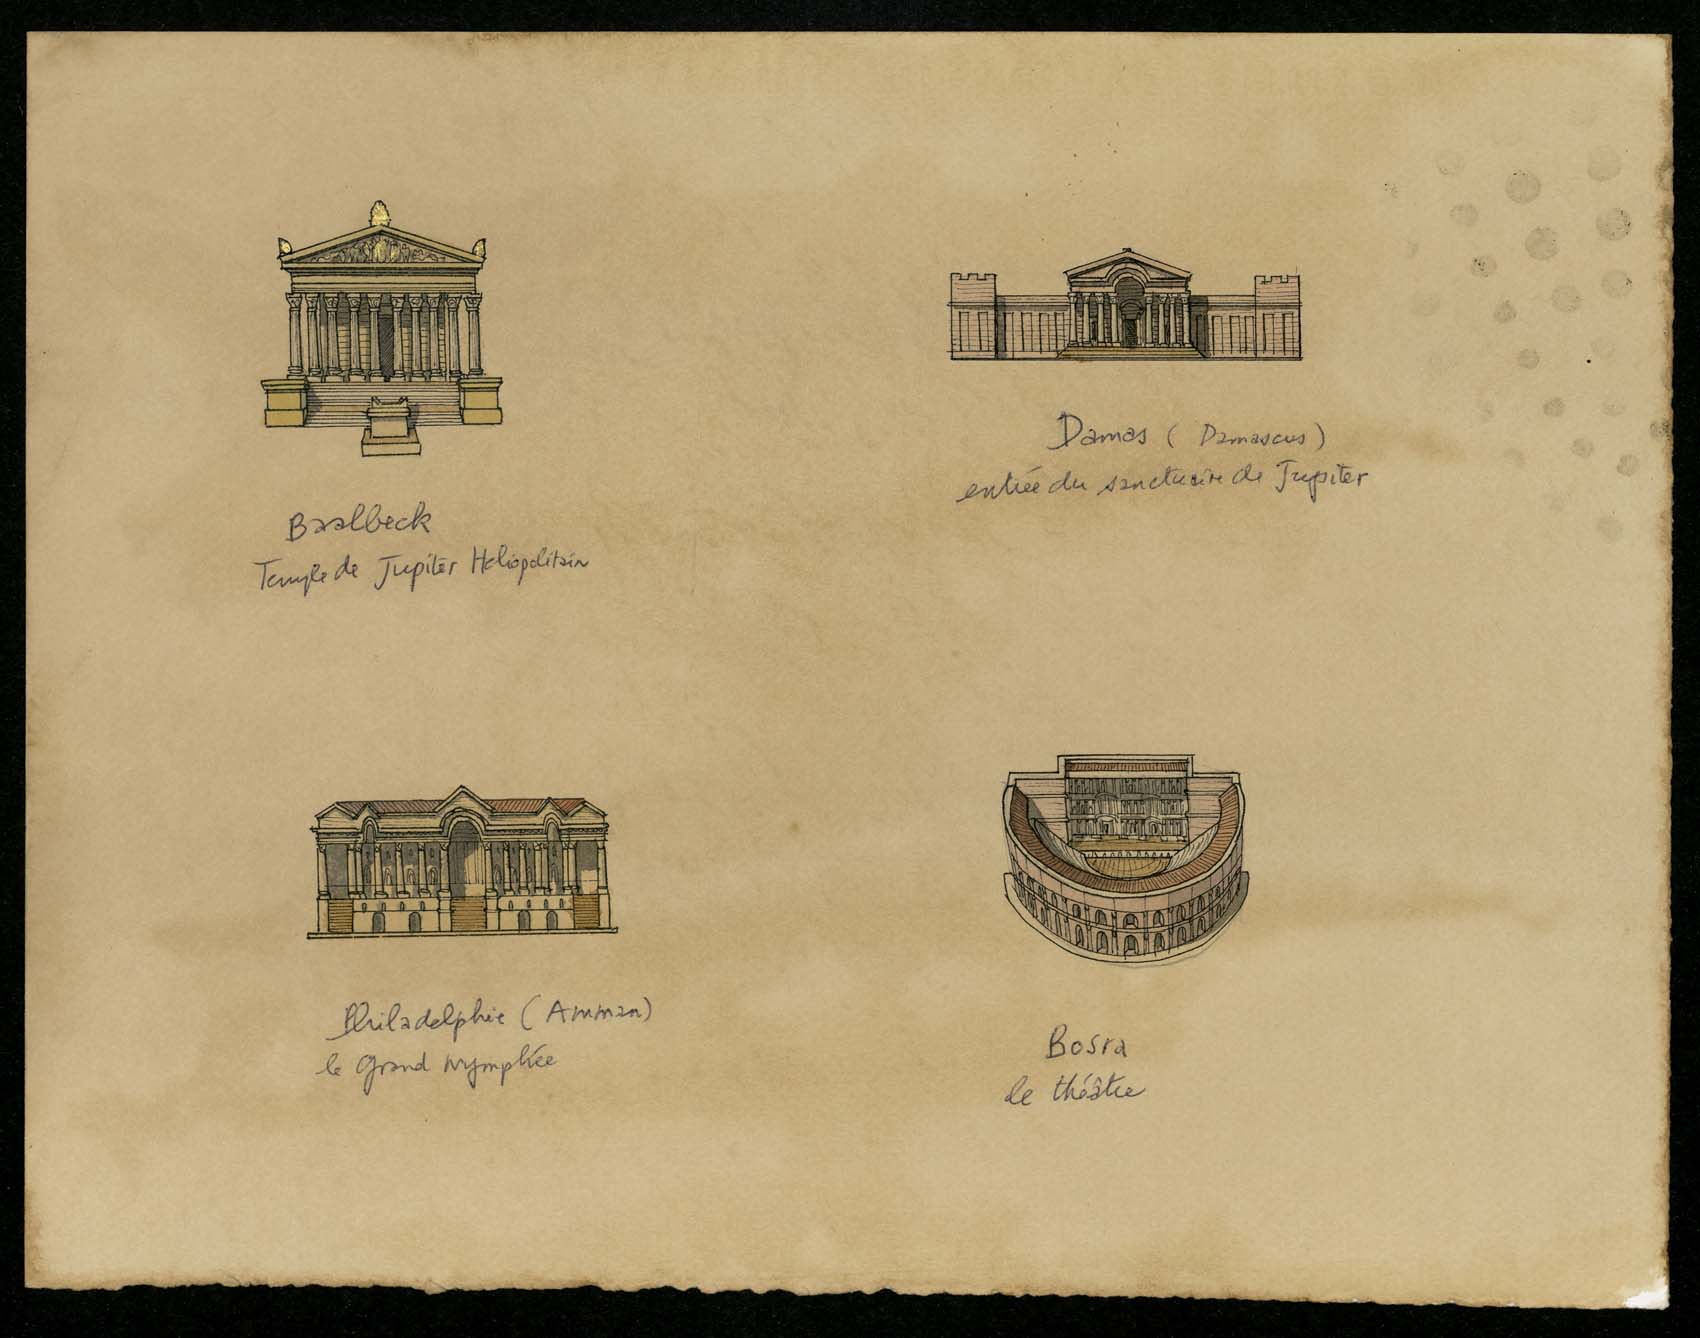 Baalbeck
Temple de Jupiter Heliopolitain
Damas (Damascus)
entrée du sanctuaire de Jupiter
Philadelphie (Amman)
le Grand nymphée
Bosra
le théâtre